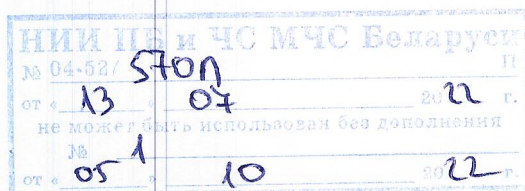 НИИ ПБ и ЧС МЧС Беларуси
№ 04-52/ 570П П
от « 13 » 07 2022 г.
не может быть использован без дополнения
№ 1
от « 05 » 10 2022 г.